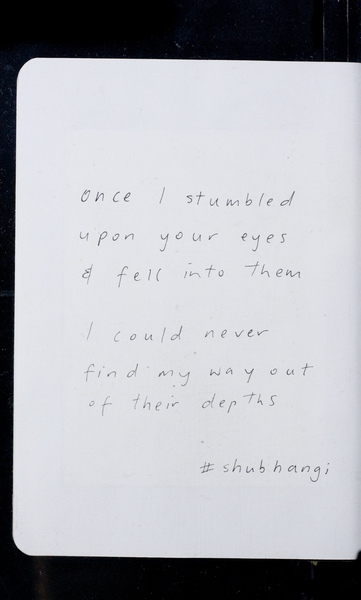 once I stumbled
upon your eyes
& fell into them
I could never
find my way out
of their depths
#shubhangi